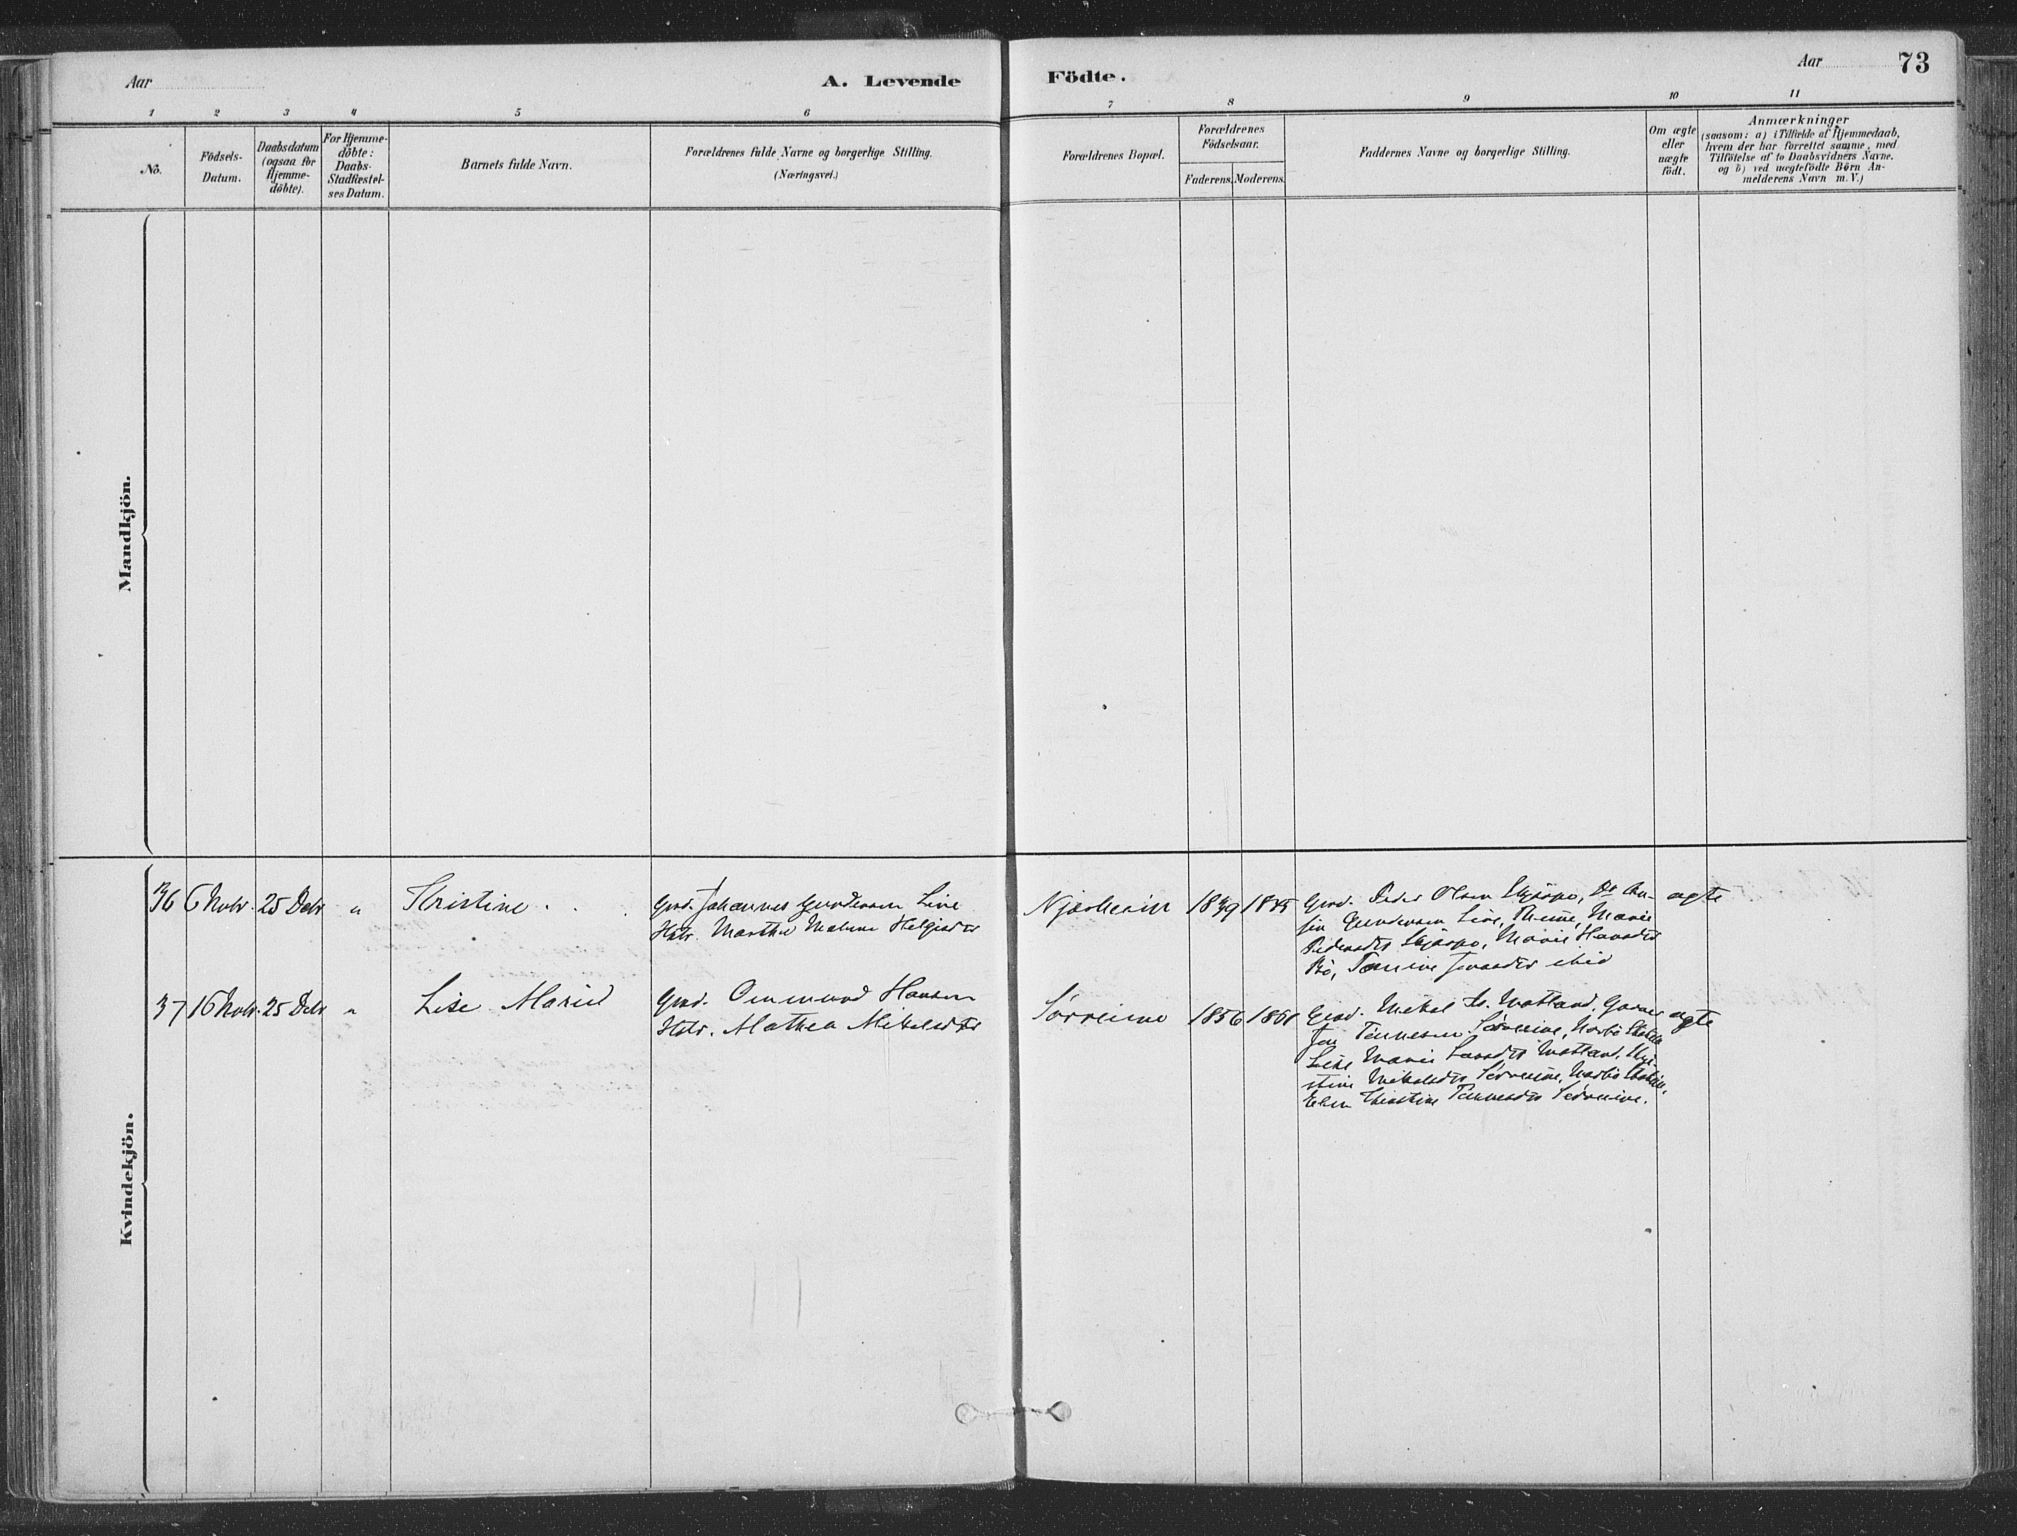 Aar
A. Levende
Födte.
Aar
73
1 2 3 4 5 6 7 8 9 10 11
No.
Födsels-
Datum.
Daabsdatum
(ogsaa for
Hjemme-
döbte).
For Hjemme-
döbte:
Daabs-
Stadfæstel-
ses Datum.
Barnets fulde Navn.
Forældrenes fulde Navne og borgerlige Stilling.
(Næringsvei.)
Forældrenes Bopæl.
Forældrenes
Födselsaar.
Faderens. Moderens.
Faddernes Navne og borgerlige Stilling.
Om ægte
eller
uægte
födt.
Anmærkninger
(saasom: a) i Tilfælde af Hjemmedaab,
hvem der har forrettet samme, med
Tilföielse af to Daabsvidners Navne.
og b) ved uægtefödte Börn An-
melderens Navn m. V.)
Mandkjön.
Kvindekjön.
36 6 Novr. 25 Decbr " Kristine
Grd. Johannes Gundersen Line
Hstr. Marthe Malene Helgesdtr
Njærheim 1839 1835
Grd. Peder Olsen
Gundersen Line, Marie
Pedersdtr Marie Hansdtr
Bö, ibid
ægte
37 16 Novr. 25 Decbr " Lise Marie
Grd. Ommund Hansen
Hstr. Mathea Mikelsdtr
Sörreime 1856 1861
Grd. Mikal Watland,
Tönnesen Sörreime,
Lise Marie Watland,
Mikalsdtr Sörreime,
Tönnesdtr Sörreime.
ægte